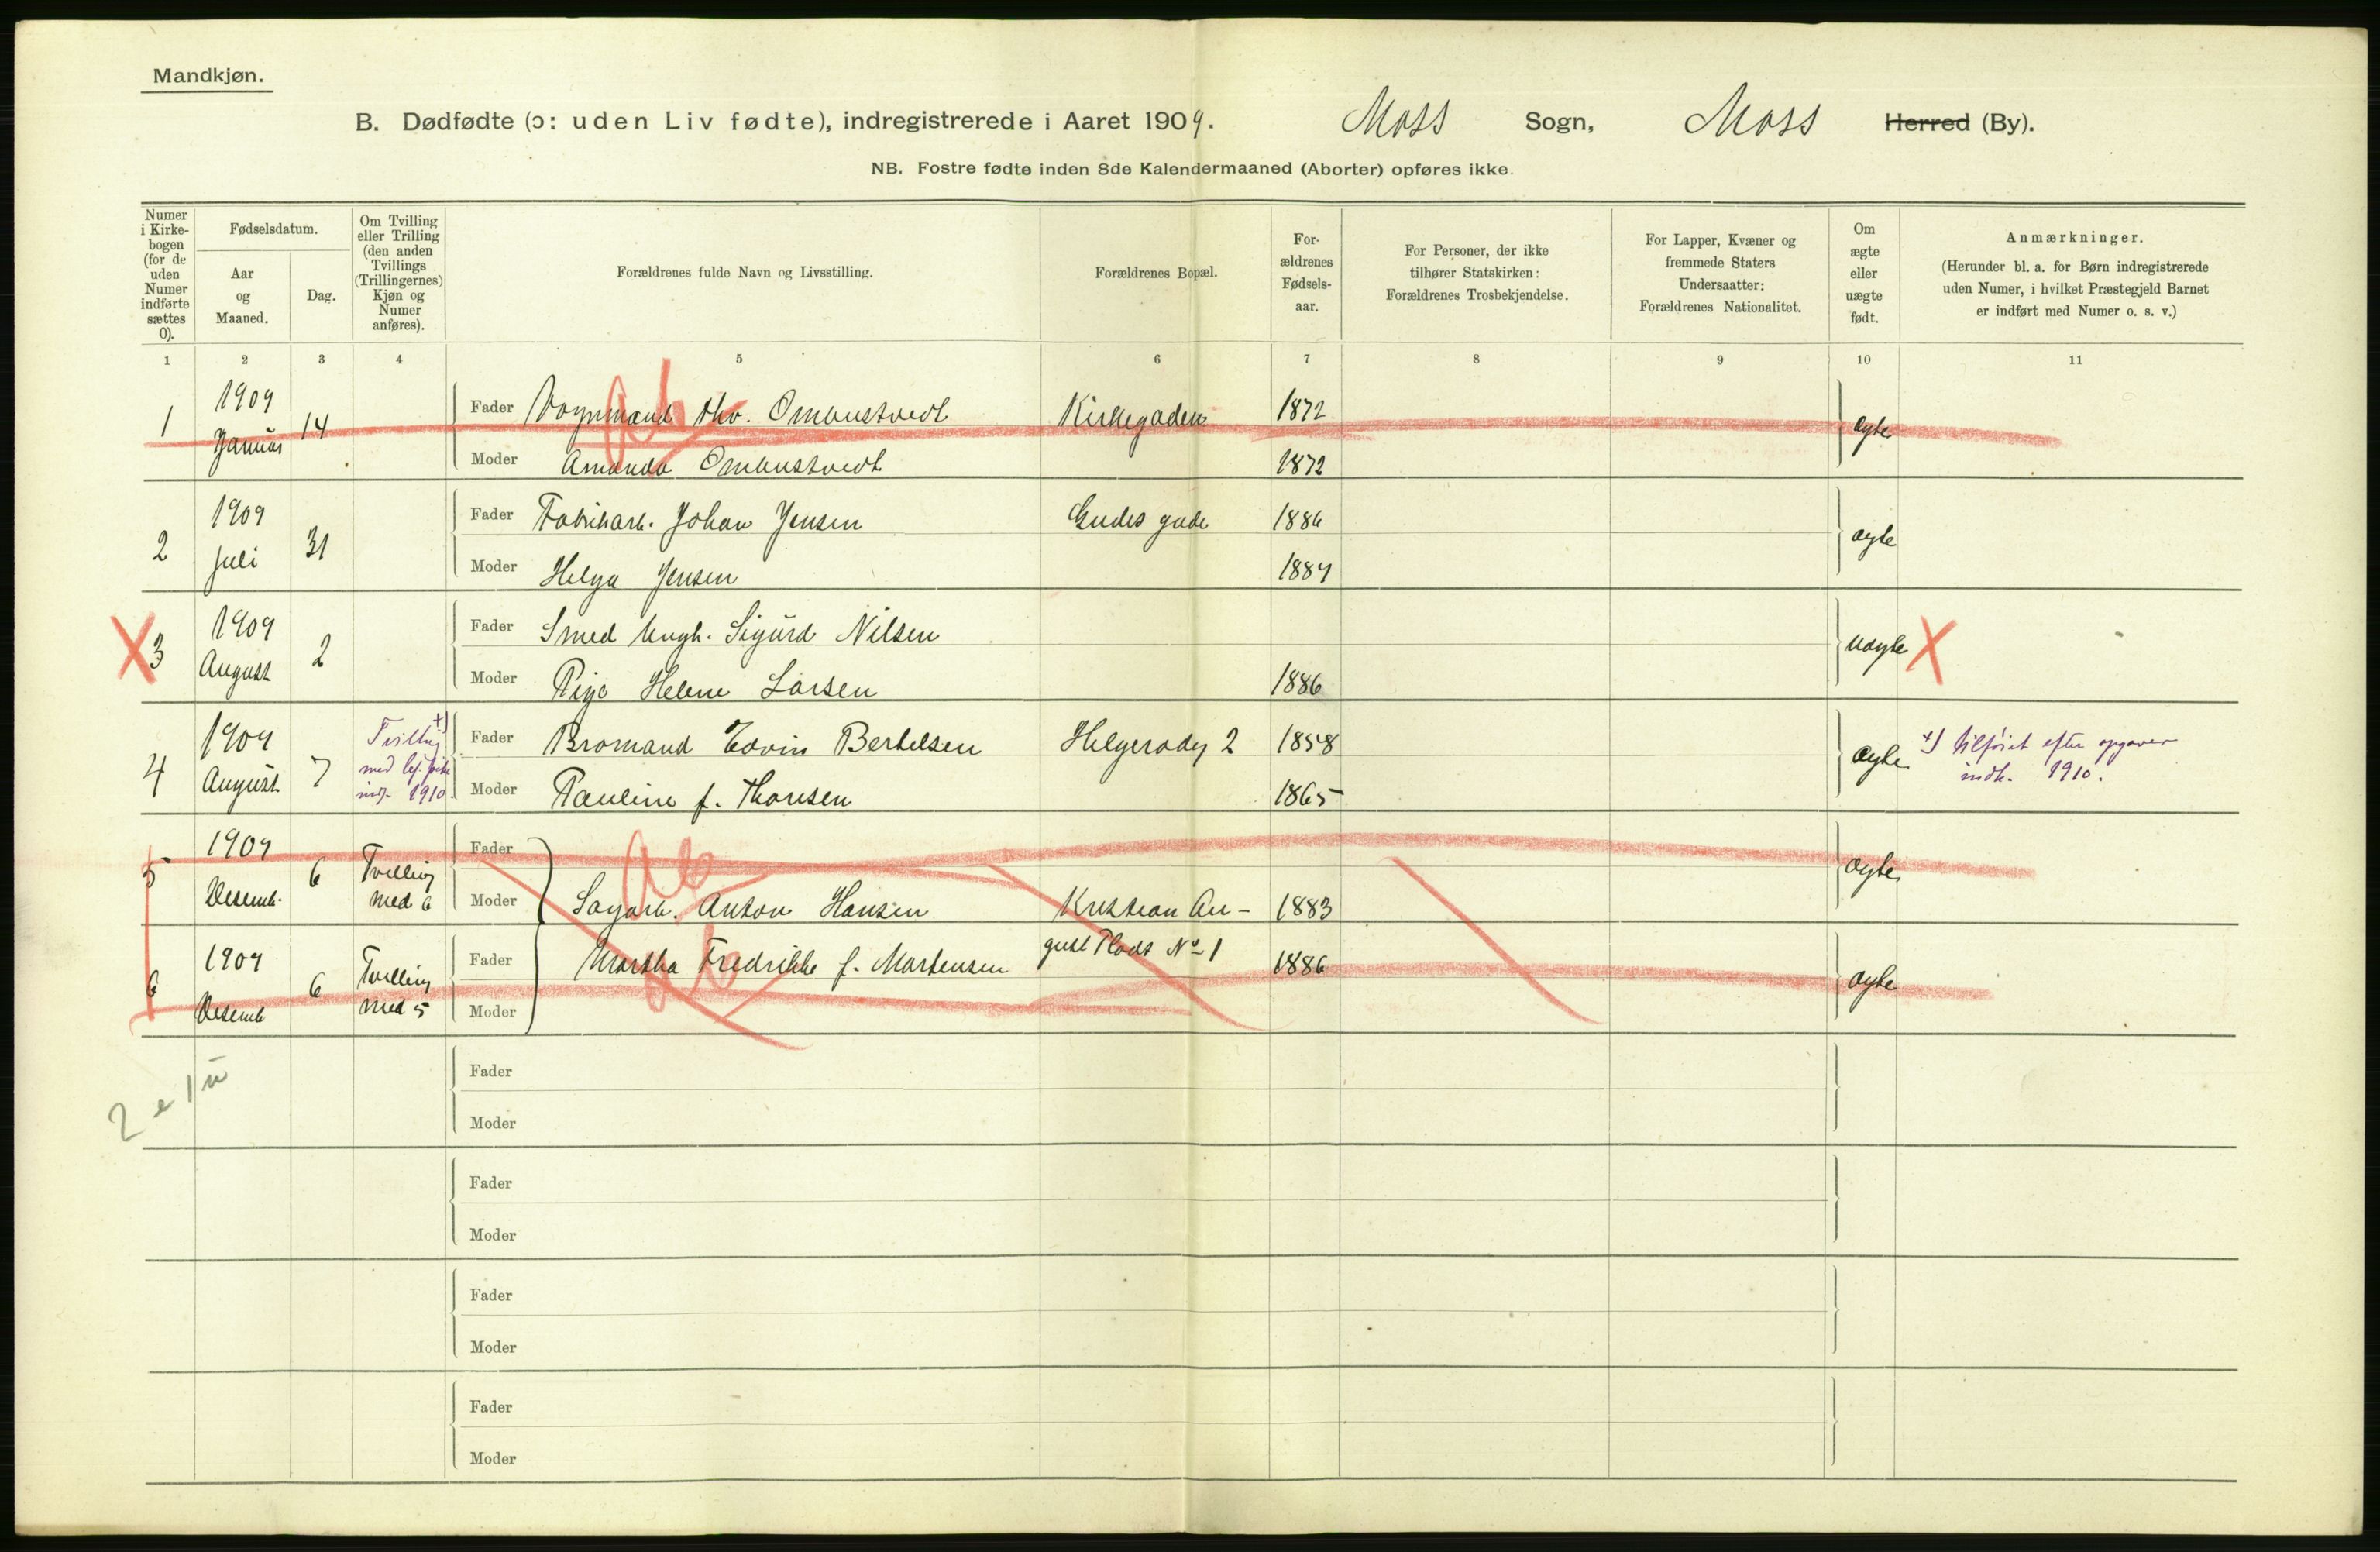 Mandkjøn.
B. Dødfødte (ɔ: uden Liv fødte), indregistrerede i Aaret 1909. Moss Sogn, Moss Herred (By).
NB. Fostre fødte inden 8de Kalendermaaned (Aborter) opføres ikke.
Numer i Kirkebogen (for de uden Numer indførte sættes 0).
Fødselsdatum.
Aar og Maaned.
Dag.
Om Tvilling eller Trilling (den anden Tvillings (Trillingernes) Kjøn og Numer anføres).
Forældrenes fulde Navn og Livsstilling.
Forældrenes Bopæl.
Forældrenes Fødselsaar.
For Personer, der ikke tilhører Statskirken: Forældrenes Trosbekjendelse.
For Lapper, Kvæner og fremmede Staters Undersaatter: Forældrenes Nationalitet.
Om ægte eller uægte født.
Anmærkninger.
(Herunder bl. a. for Børn indregistrerede uden Numer, i hvilket Præstegjeld Barnet er indført med Numer o. s. v.)
1 2 3 4 5 6 7 8 9 10 11
1 1909 Januar 14 Fader Vognmand Kirkegaden 1872 ægte
Ab
Moder Amanda 1872
2 1909 Juli 31 Fader Fabrikarb. Johan Jensen Gudes gade 1886 ægte
Moder Helga Jensen 1889
X 3 1909 August 2 Fader Smed Ungk. Sigurd Nilsen uægte X
Moder Pige Helene Larsen 1886
4 1909 August 7 Tvilling +) med indf. 1910. Fader Bromand Edvin Bertelsen 2 1858 ægte +) tilføiet efter opgaver indh. 1910.
Moder Pauline f. Thoresen 1865
5 1909 Desemb. 6 Tvilling med 6 Fader ægte
Ab
Moder Sagarb. Anton Hansen Kristian Au- 1883
6 1909 Desemb 6 Tvilling med 5 Fader Martha Fredrikke f. Martensen gust Plads No 1 1886 ægte
Ab
Moder
2 e 1 u
Fader
Moder
Fader
Moder
Fader
Moder
Fader
Moder